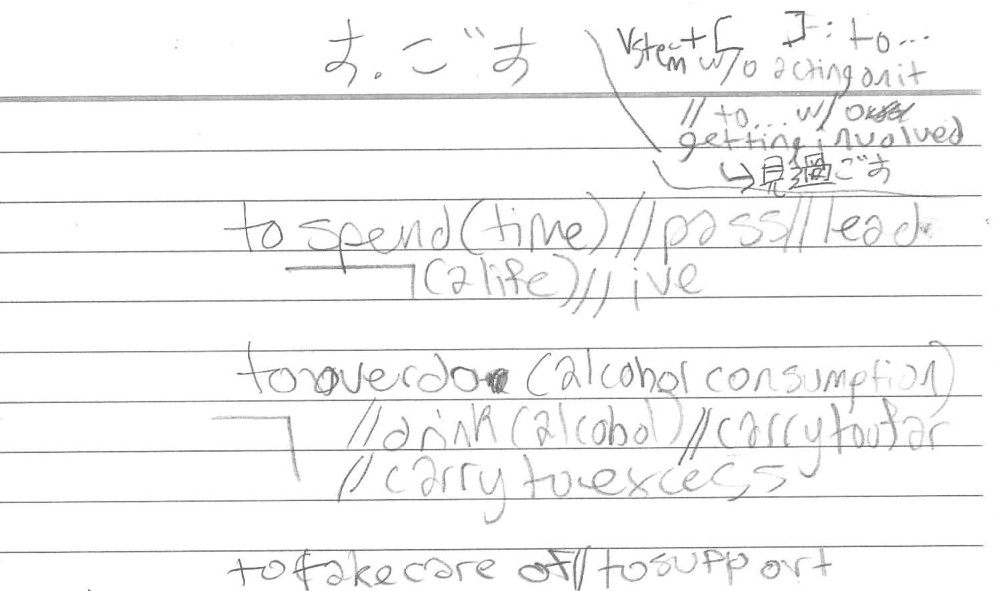 す.ごす
Vstem+[ ]: to...
w/o acting on it
// to... w/o
getting involved
↳見過ごす
to spend (time) // pass // lead
(a life) // live
to overdo (alcohol consumption)
// drink (alcohol) // carry too far
// carry to excess
to take care of // to support